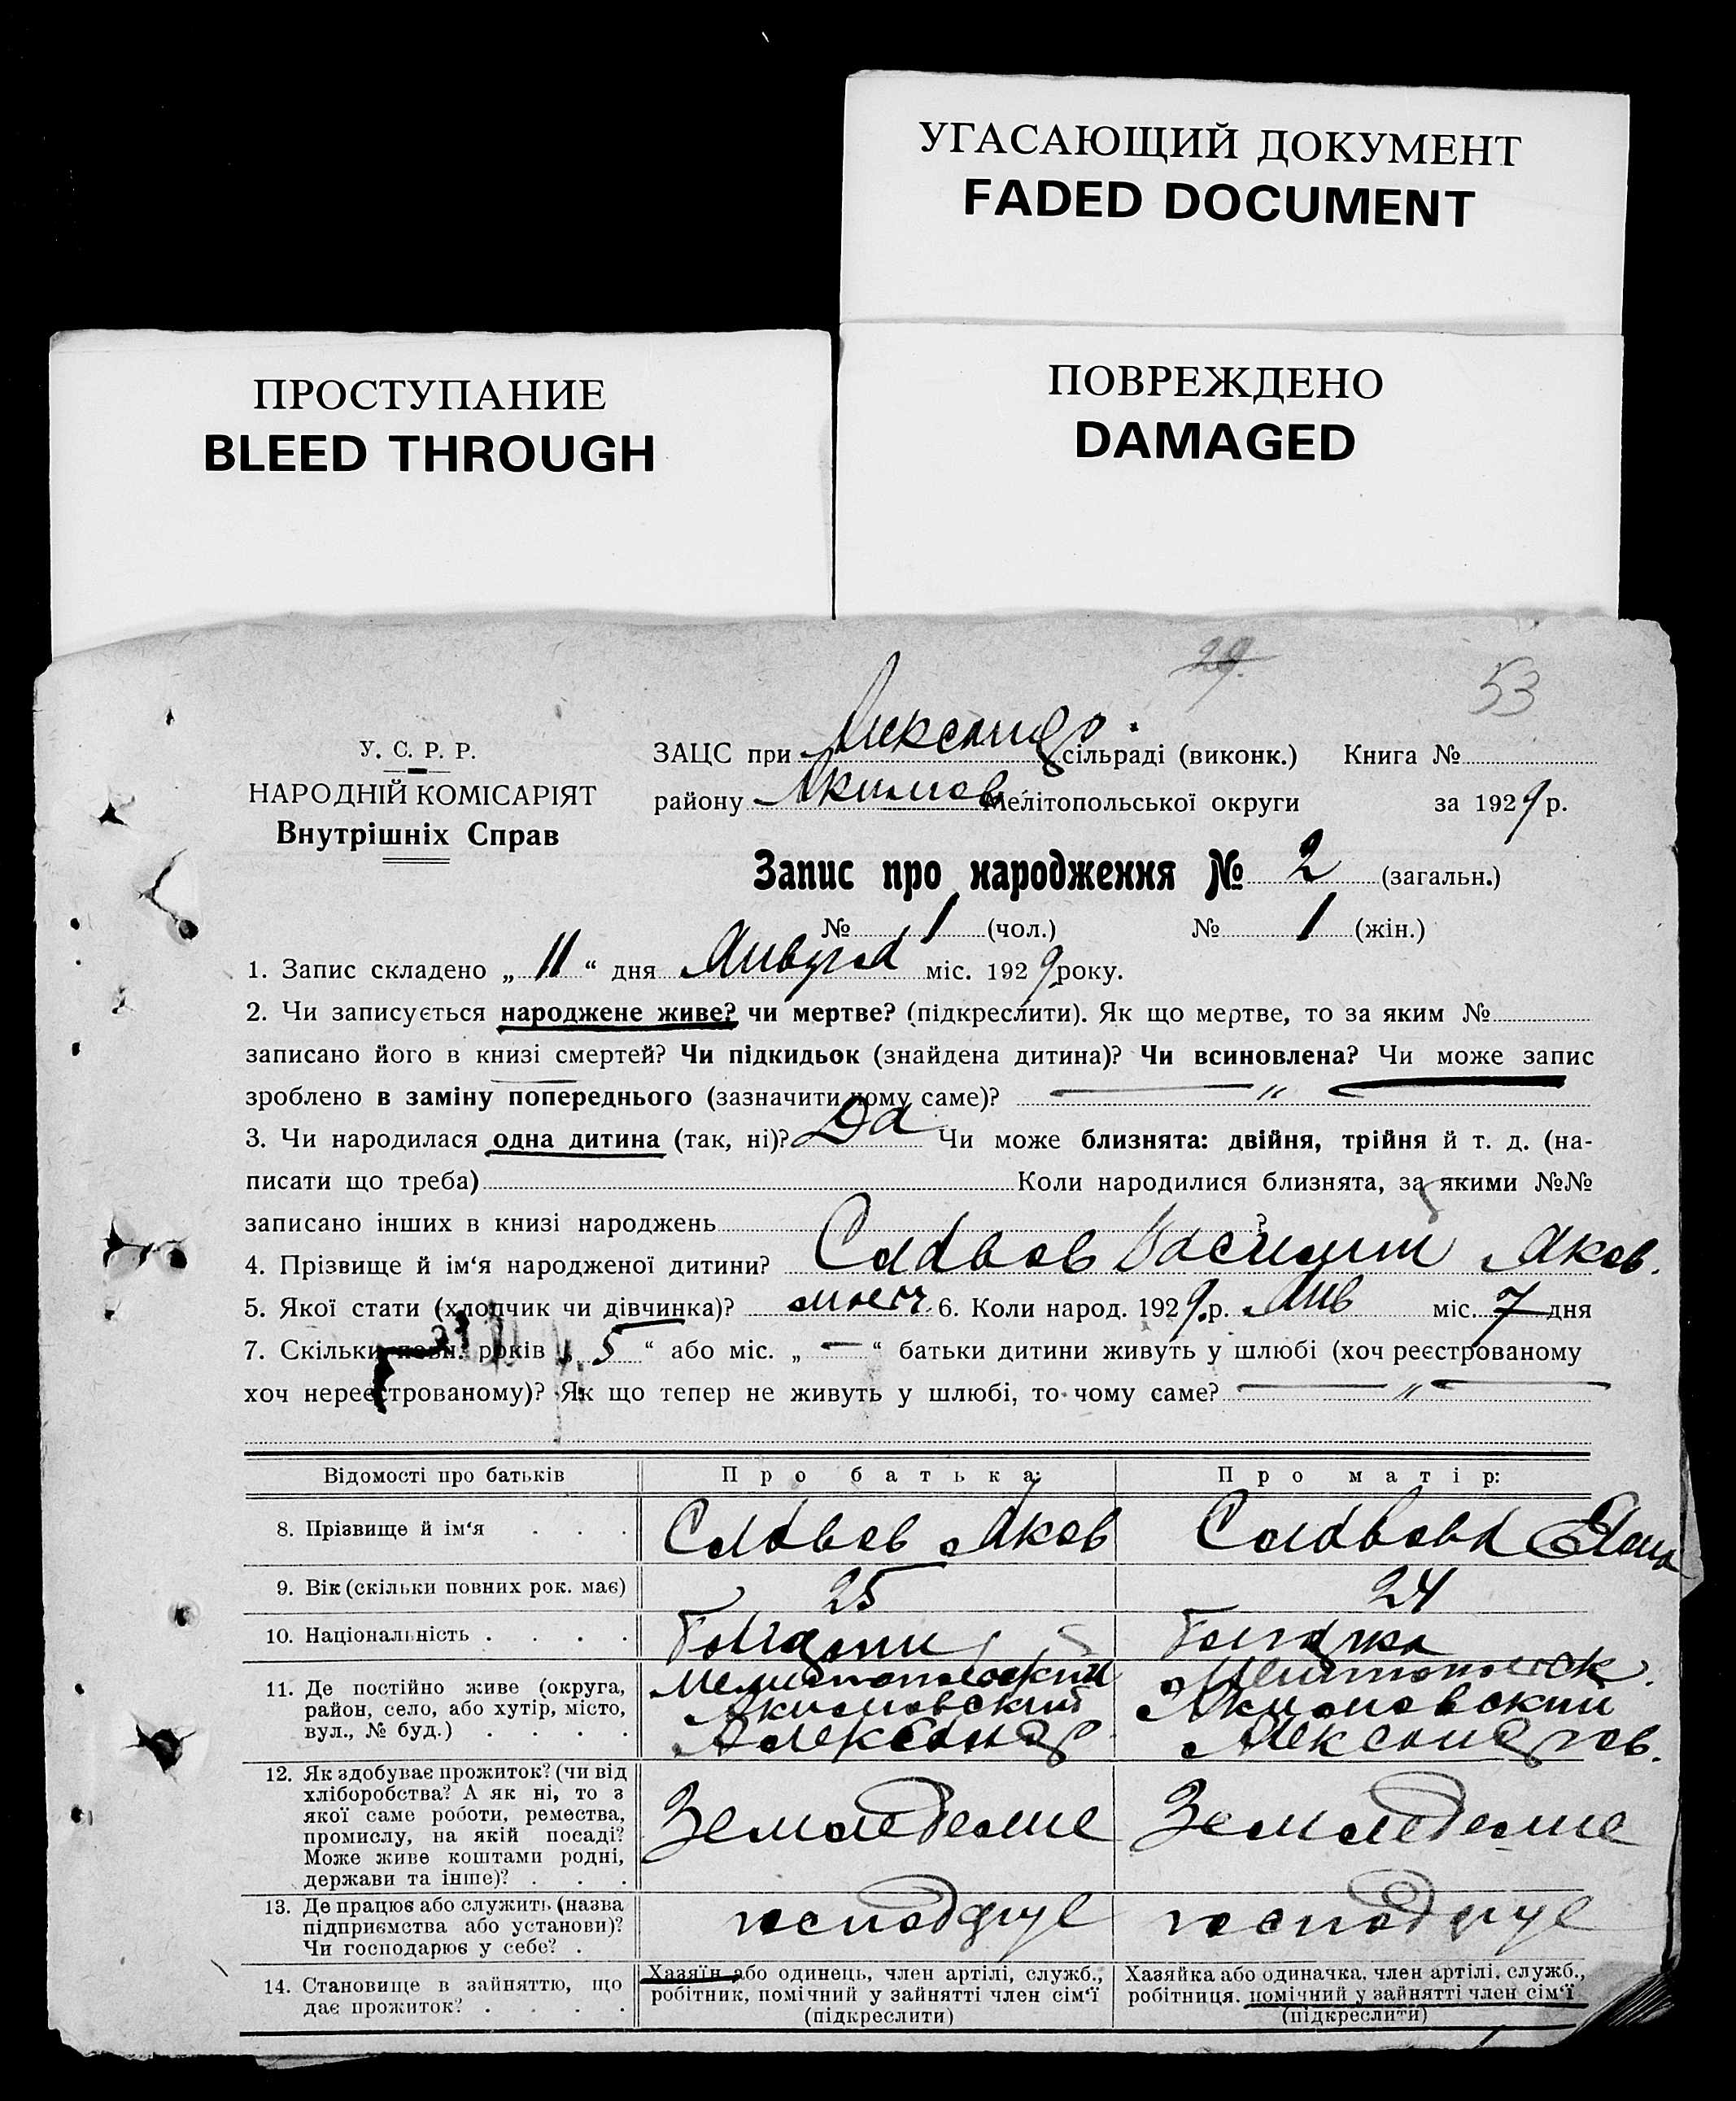 УГАСАЮЩИЙ ДОКУМЕНТ
FADED DOCUMENT
ПРОСТУПАНИЕ
BLEED THROUGH
ПОВРЕЖДЕНО
DAMAGED
29.
53
У. С. Р. Р.
НАРОДНІЙ КОМІСАРІЯТ
Внутрішніх Справ
ЗАЦС при Александр. сільраді (виконк.) Книга №
району Акимов Мелітопольської округи за 1929 р.
Запис про народження № 2 (загальн.)
№ 1 (чол.) № 1 (жін.)
1. Запис складено „ 11 “ дня Января міс. 1929 року.
2. Чи записується народжене живе? чи мертве? (підкреслити). Як що мертве, то за яким №
записано його в книзі смертей? Чи підкидьок (знайдена дитина)? Чи всиновлена? Чи може запис
зроблено в заміну попереднього (зазначити кому саме)? — „ —
3. Чи народилася одна дитина (так, ні)? Да Чи може близнята: двійня, трійня й т. д. (на-
писати що треба) Коли народилися близнята, за якими №№
записано інших в книзі народжень ?
4. Прізвище й ім‘я народженої дитини? Василий Яков.
5. Якої стати (хлопчик чи дівчинка)? 6. Коли народ. 1929 р. Янв міс. 7 дня
7. Скільки повн. років „ 5 “ або міс. „ — “ батьки дитини живуть у шлюбі (хоч реєстрованому
хоч нереєстрованому)? Як що тепер не живуть у шлюбі, то чому саме? — „ —
Відомості про батьків Про батька: Про матір:
8. Прізвище й ім‘я . . . Яков Елена
9. Вік (скільки повних рок. має) 25 24
10. Національність . . . . Болгарин Болгарка
11. Де постійно живе (округа, Мелитопольский Мелитопольск.
район, село, або хутір, місто, Акимовский Акимовский
вул., № буд.) . . . . Александр Александров.
12. Як здобуває прожиток? (чи від
хліборобства? А як ні, то з
якої саме роботи, ремества,
промислу, на якій посаді? Земледелие Земледелие
Може живе коштами родні,
держави та інше)? . . .
13. Де працює або служить (назва
підприємства або установи)? господрує господрує
Чи господарює у себе? .
14. Становище в зайняттю, що Хазяїн або одинець, член артілі, служб., Хазяйка або одиначка, член артілі, служб.,
дає прожиток? . . . . робітник, помічний у зайнятті член сім‘ї робітниця. помічний у зайнятті член сім‘ї
(підкреслити) (підкреслити)